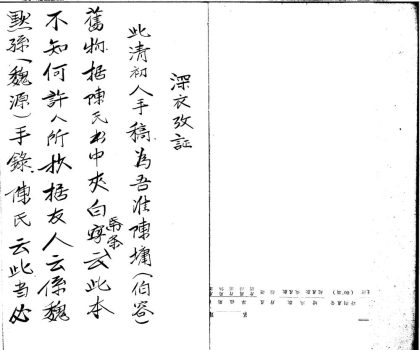 深衣攷証
此清初人手稿為吾淮陳墉(伯容)
舊物据陳氏書中夾白字条云此本
不知何許人所抄据友人云係魏
默孫(魏源)手錄陳氏云此当必